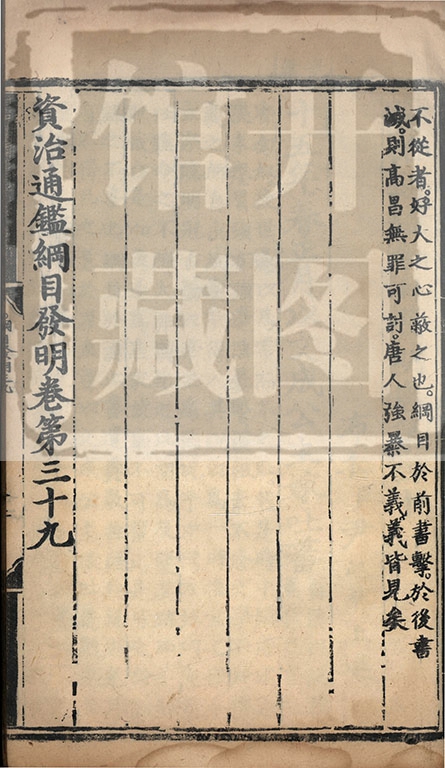 不從者。好大之心蔽之也。綱目於前書擊。於後書
滅。則高昌無罪可討。唐人強暴不義義皆見矣
資治通鑑綱目發明卷第三十九
开图
馆藏